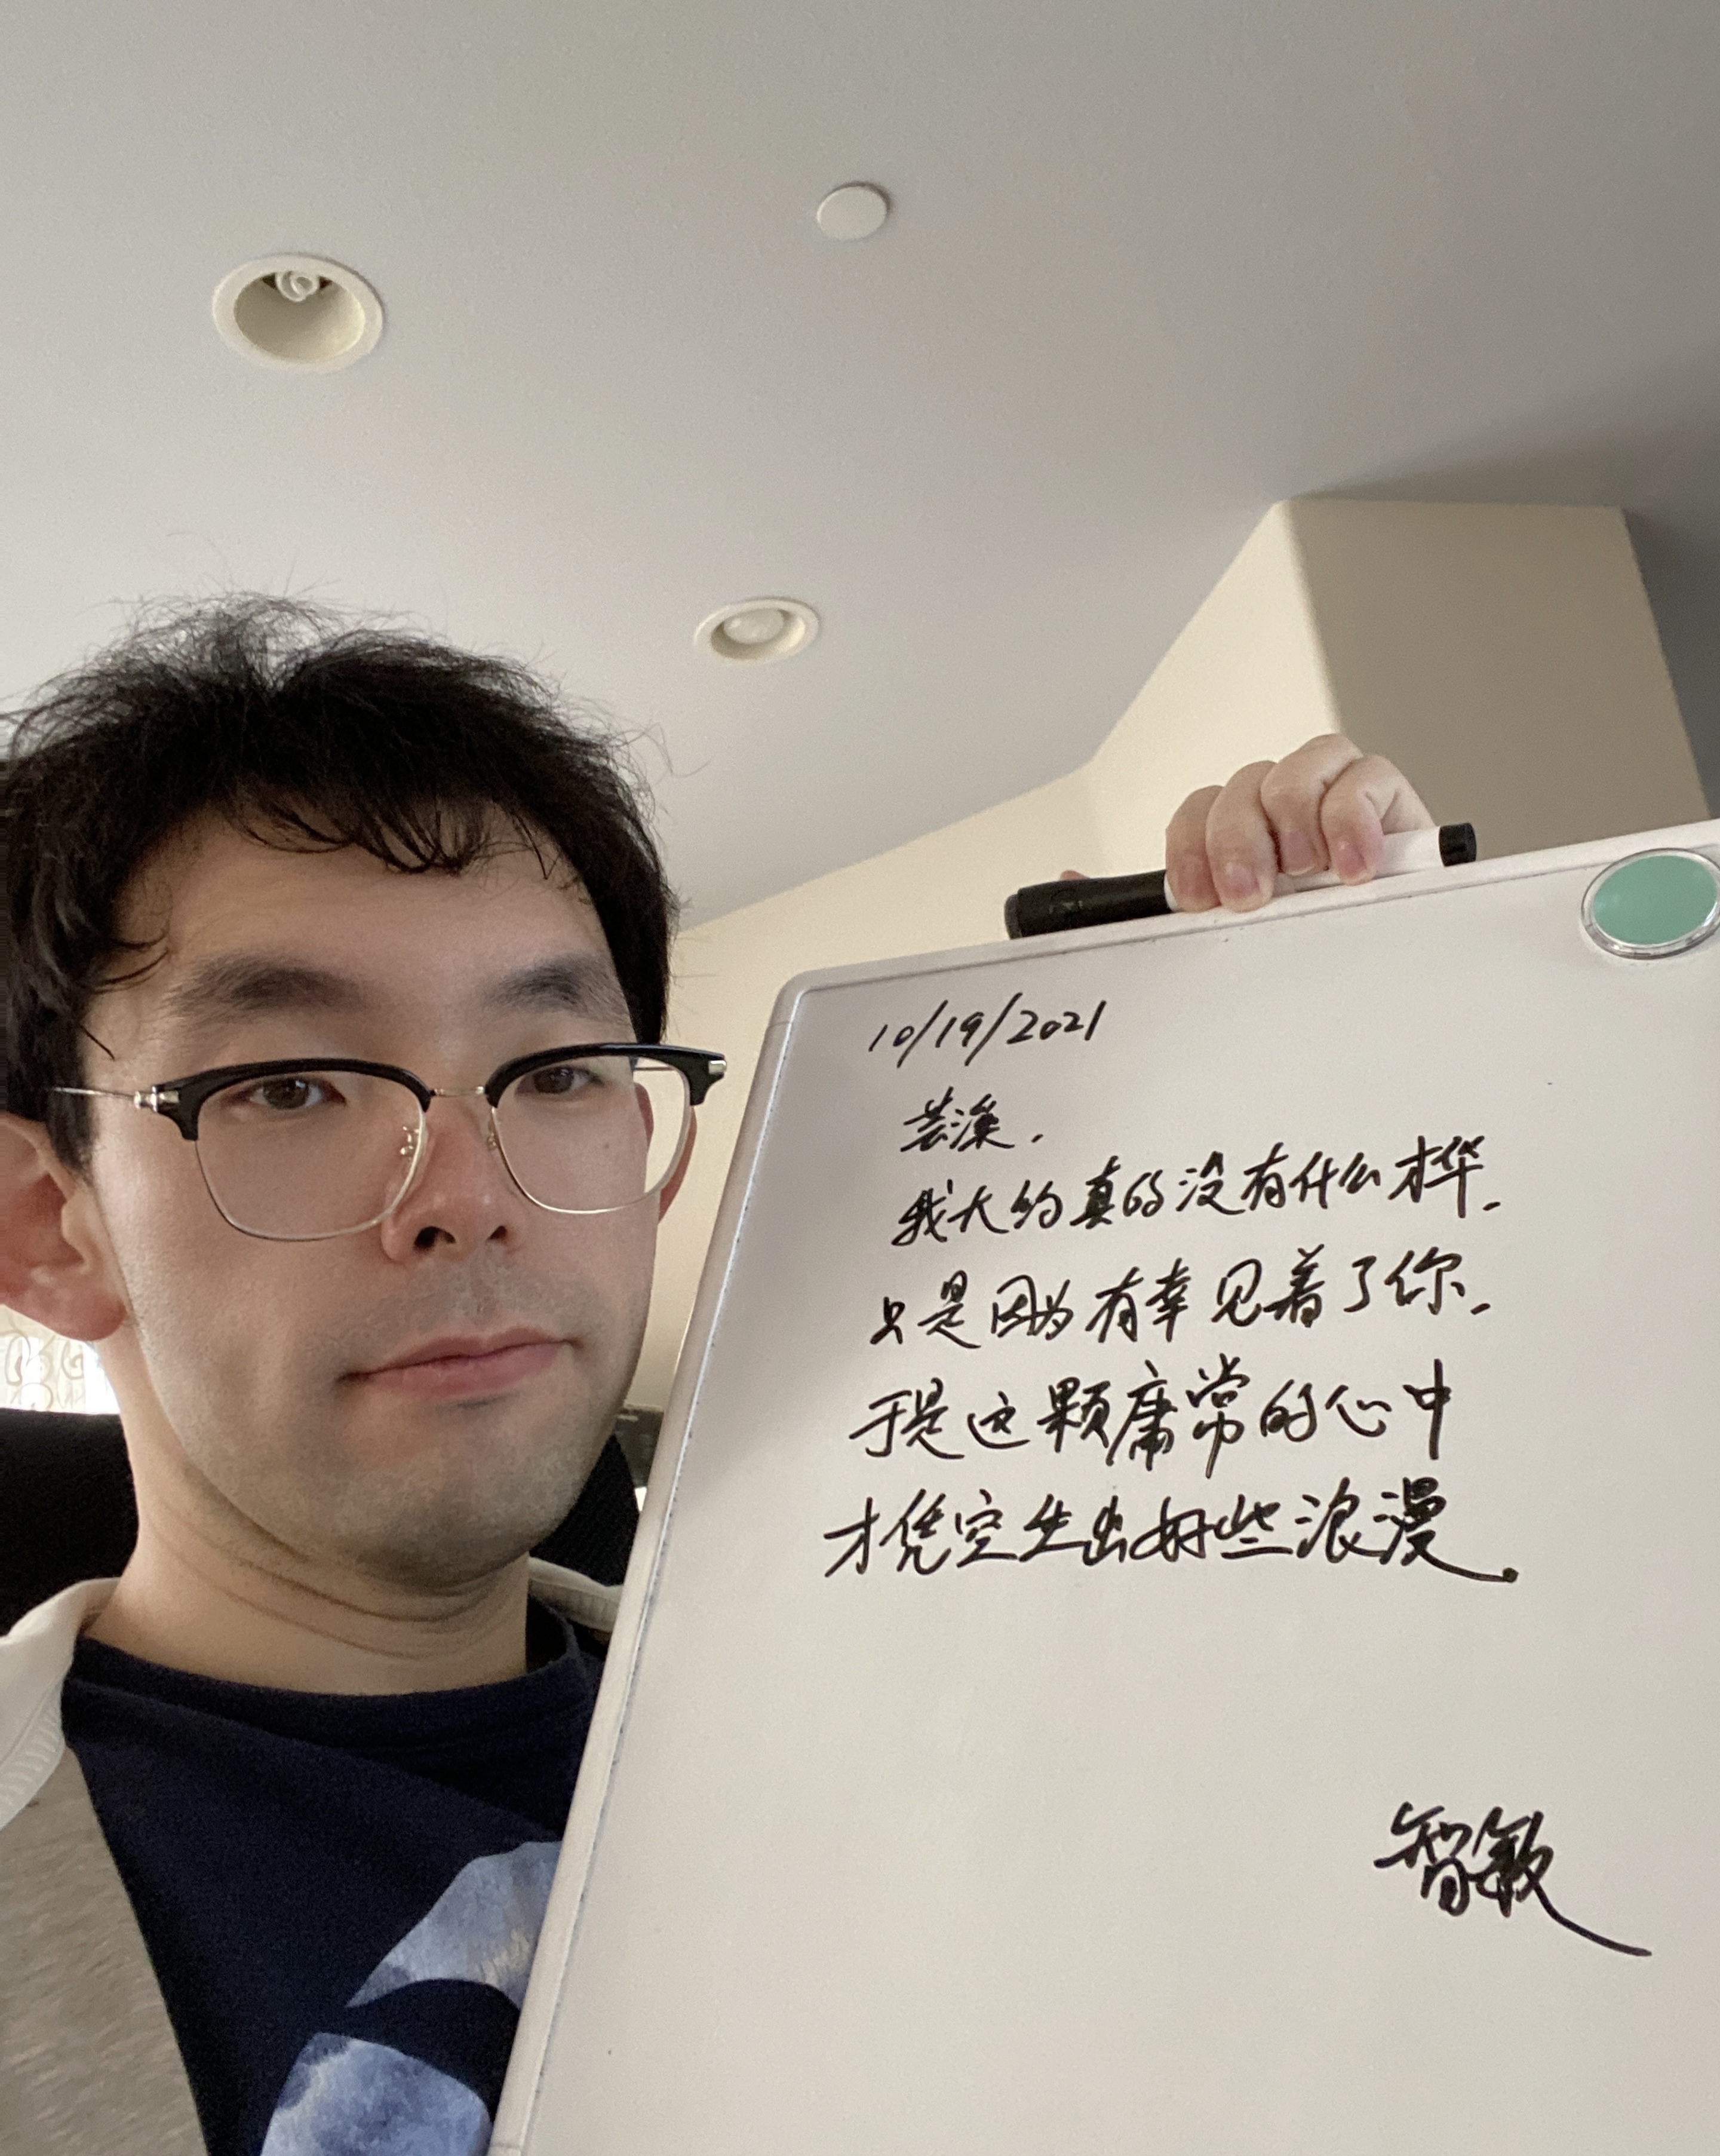 10/19/2021
芸溪，
我大约真的没有什么才华，
只是因为有幸见着了你，
于是这颗庸常的心中
才凭空生出好些浪漫。
智敏